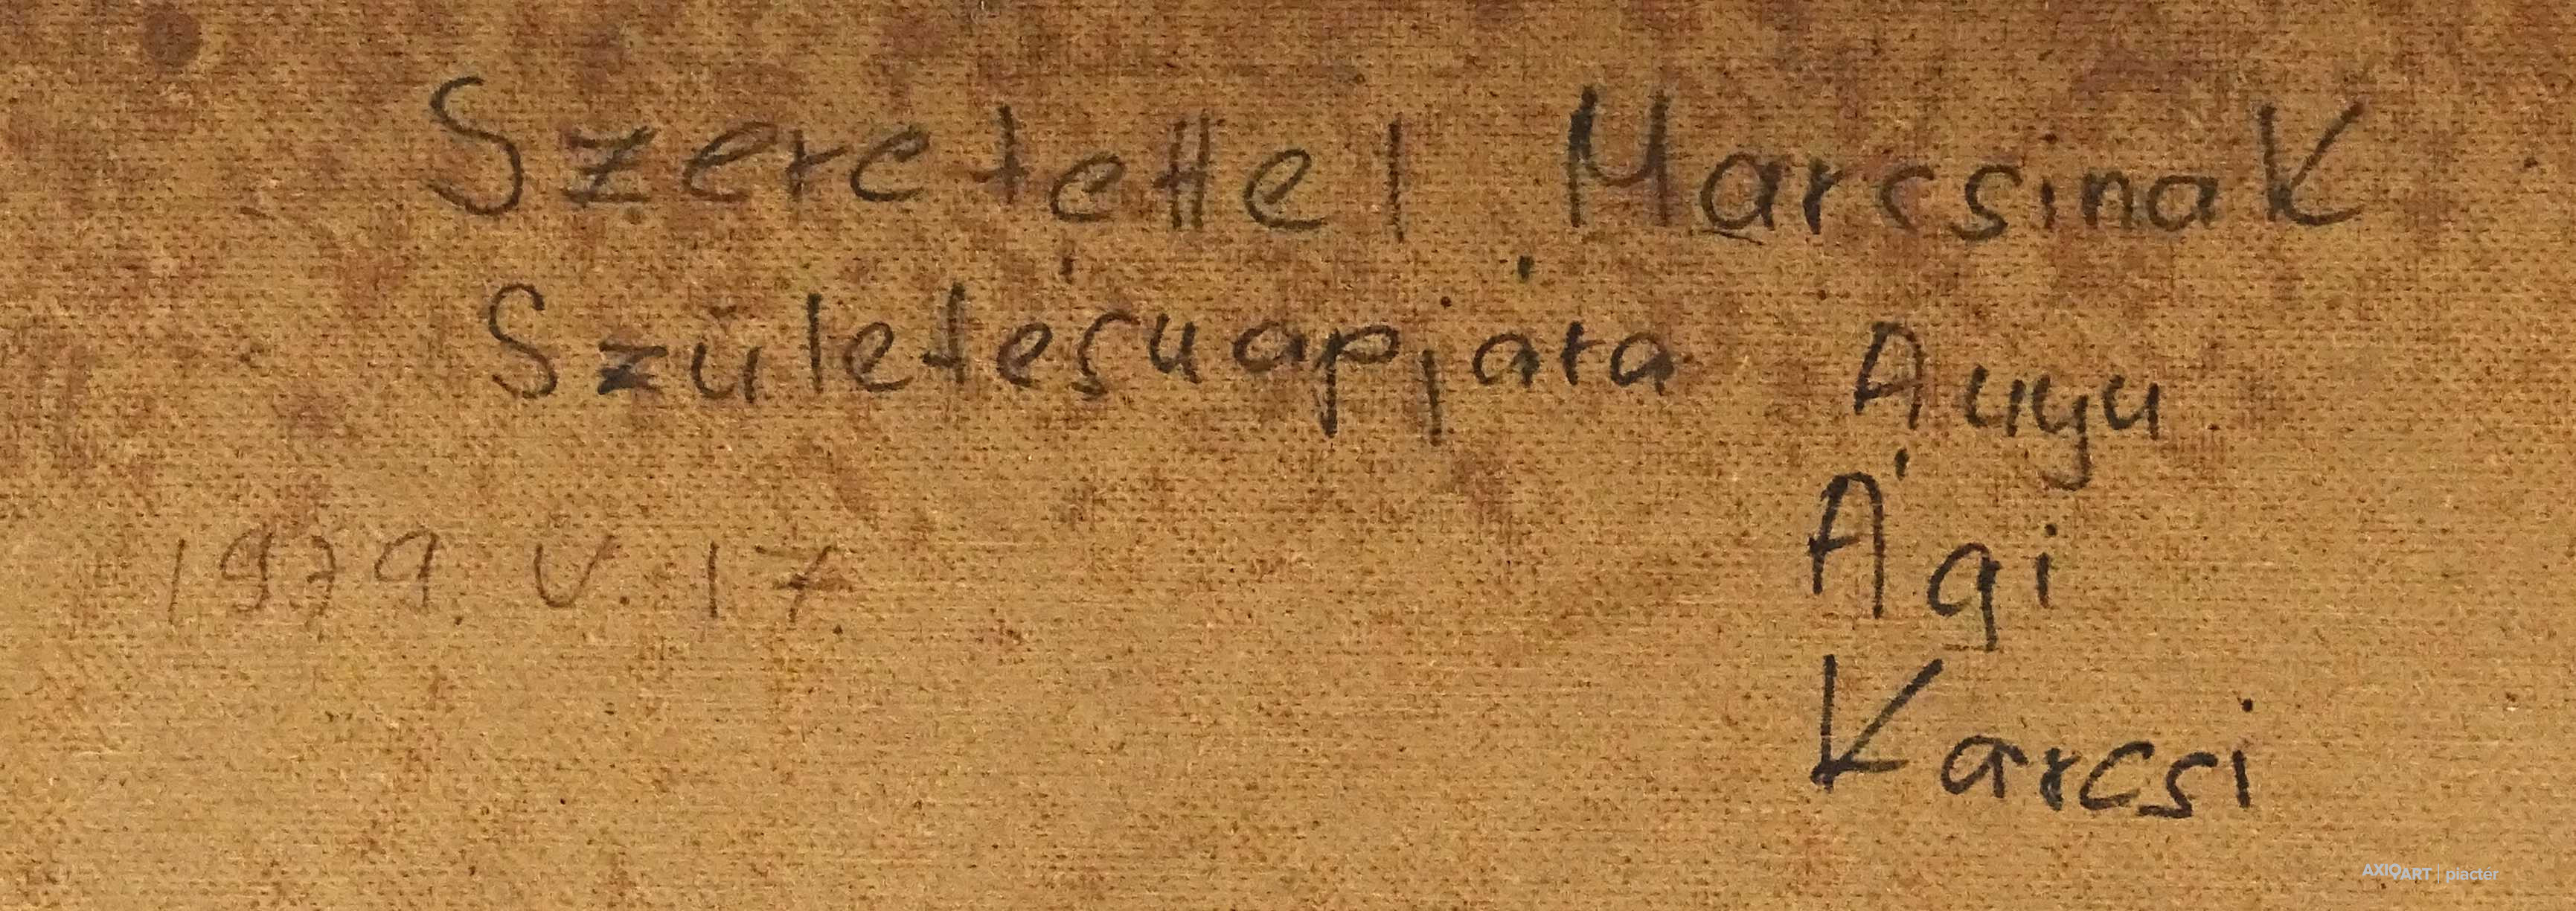 Szeretettel Marcsinak
Születésnapjára
Anyu
Ági
1979. V. 17.
Karcsi
AXIOART | piactér